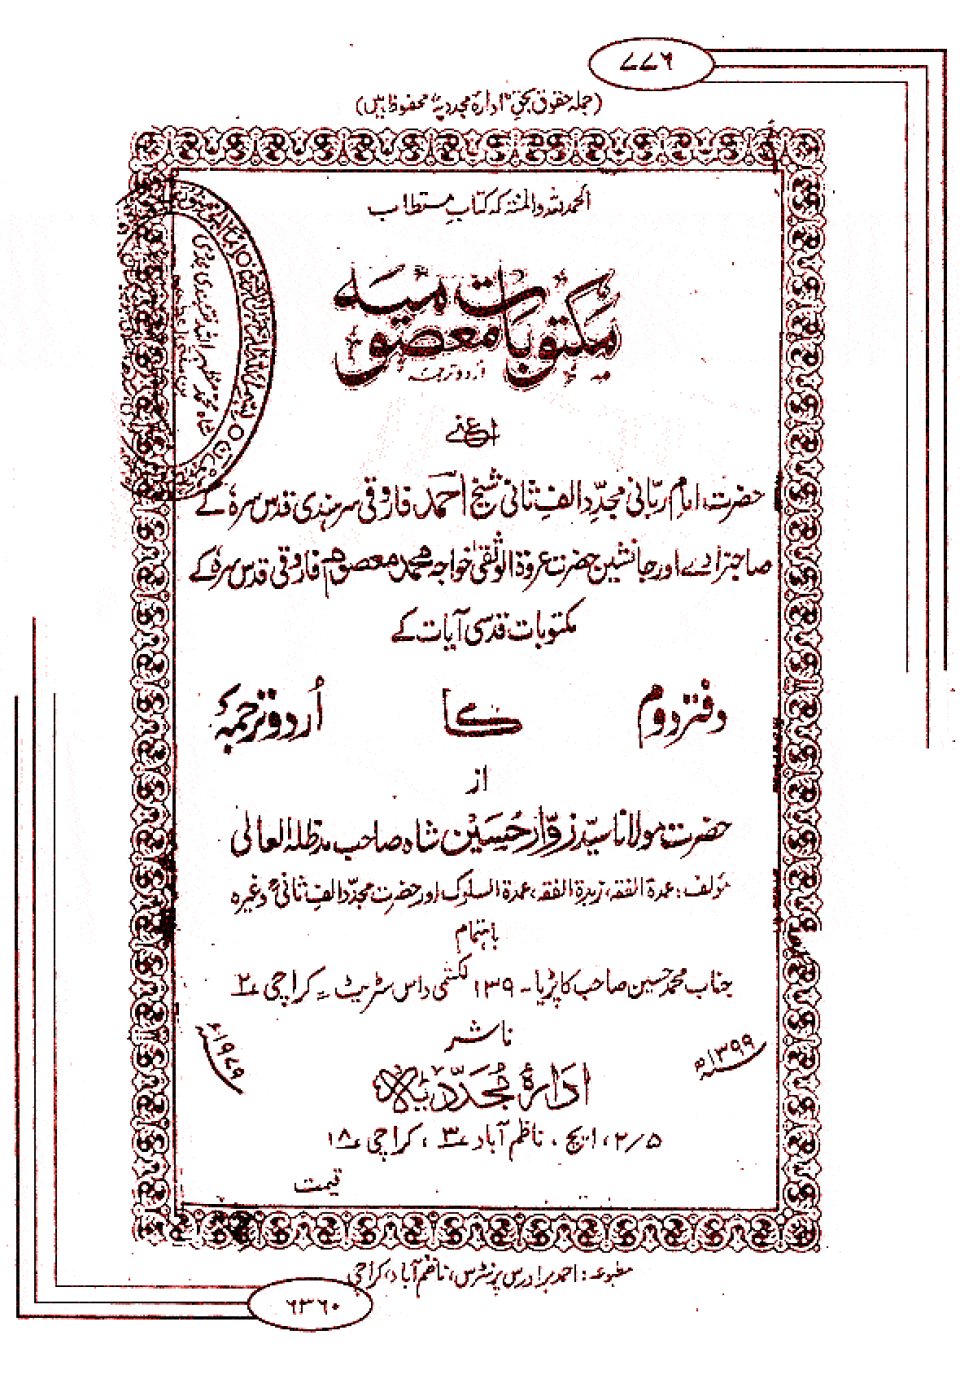 ۷۷۶
(جملہ حقوق بحق "ادارۂ مجددیہ" محفوظ ہیں)
الحمد للہ والمنۃ کہ کتابِ مستطاب
مکتوبات معصومیہ
اردو ترجمہ
اعنے
حضرت امام ربّانی مجدّد الفِ ثانی شیخ احمد فاروقی سرہندی قدس سرہٗ کے
صاحبزادے اور جانشین حضرت عروۃ الوثقیٰ خواجہ محمد معصوم فاروقی قدس سرہٗ کے
مکتوبات قدسی آیات کے
دفتر دوم کا اُردو ترجمہ
از
حضرت مولانا سیّد زوّار حُسین شاہ صاحب مدظلہ العالی
مؤلف: عمدۃ الفقہ، زبدۃ الفقہ، عمدۃ السلوک اور حضرت مجدّد الفِ ثانیؒ وغیرہ
باہتمام
جناب محمد حسین صاحب کاپڑیا ۔ ۱۳۹ لکشمی داس سٹریٹ ۔ کراچی ۲
۱۳۹۹ھ
۱۹۷۹ء
ناشر
ادارۂ مُجدّدیہ
۲/۵، ایچ، ناظم آباد ۳، کراچی ۱۸
قیمت
مطبوعہ: احمد برادرس پرنٹرس، ناظم آباد، کراچی
۶۳۶۰